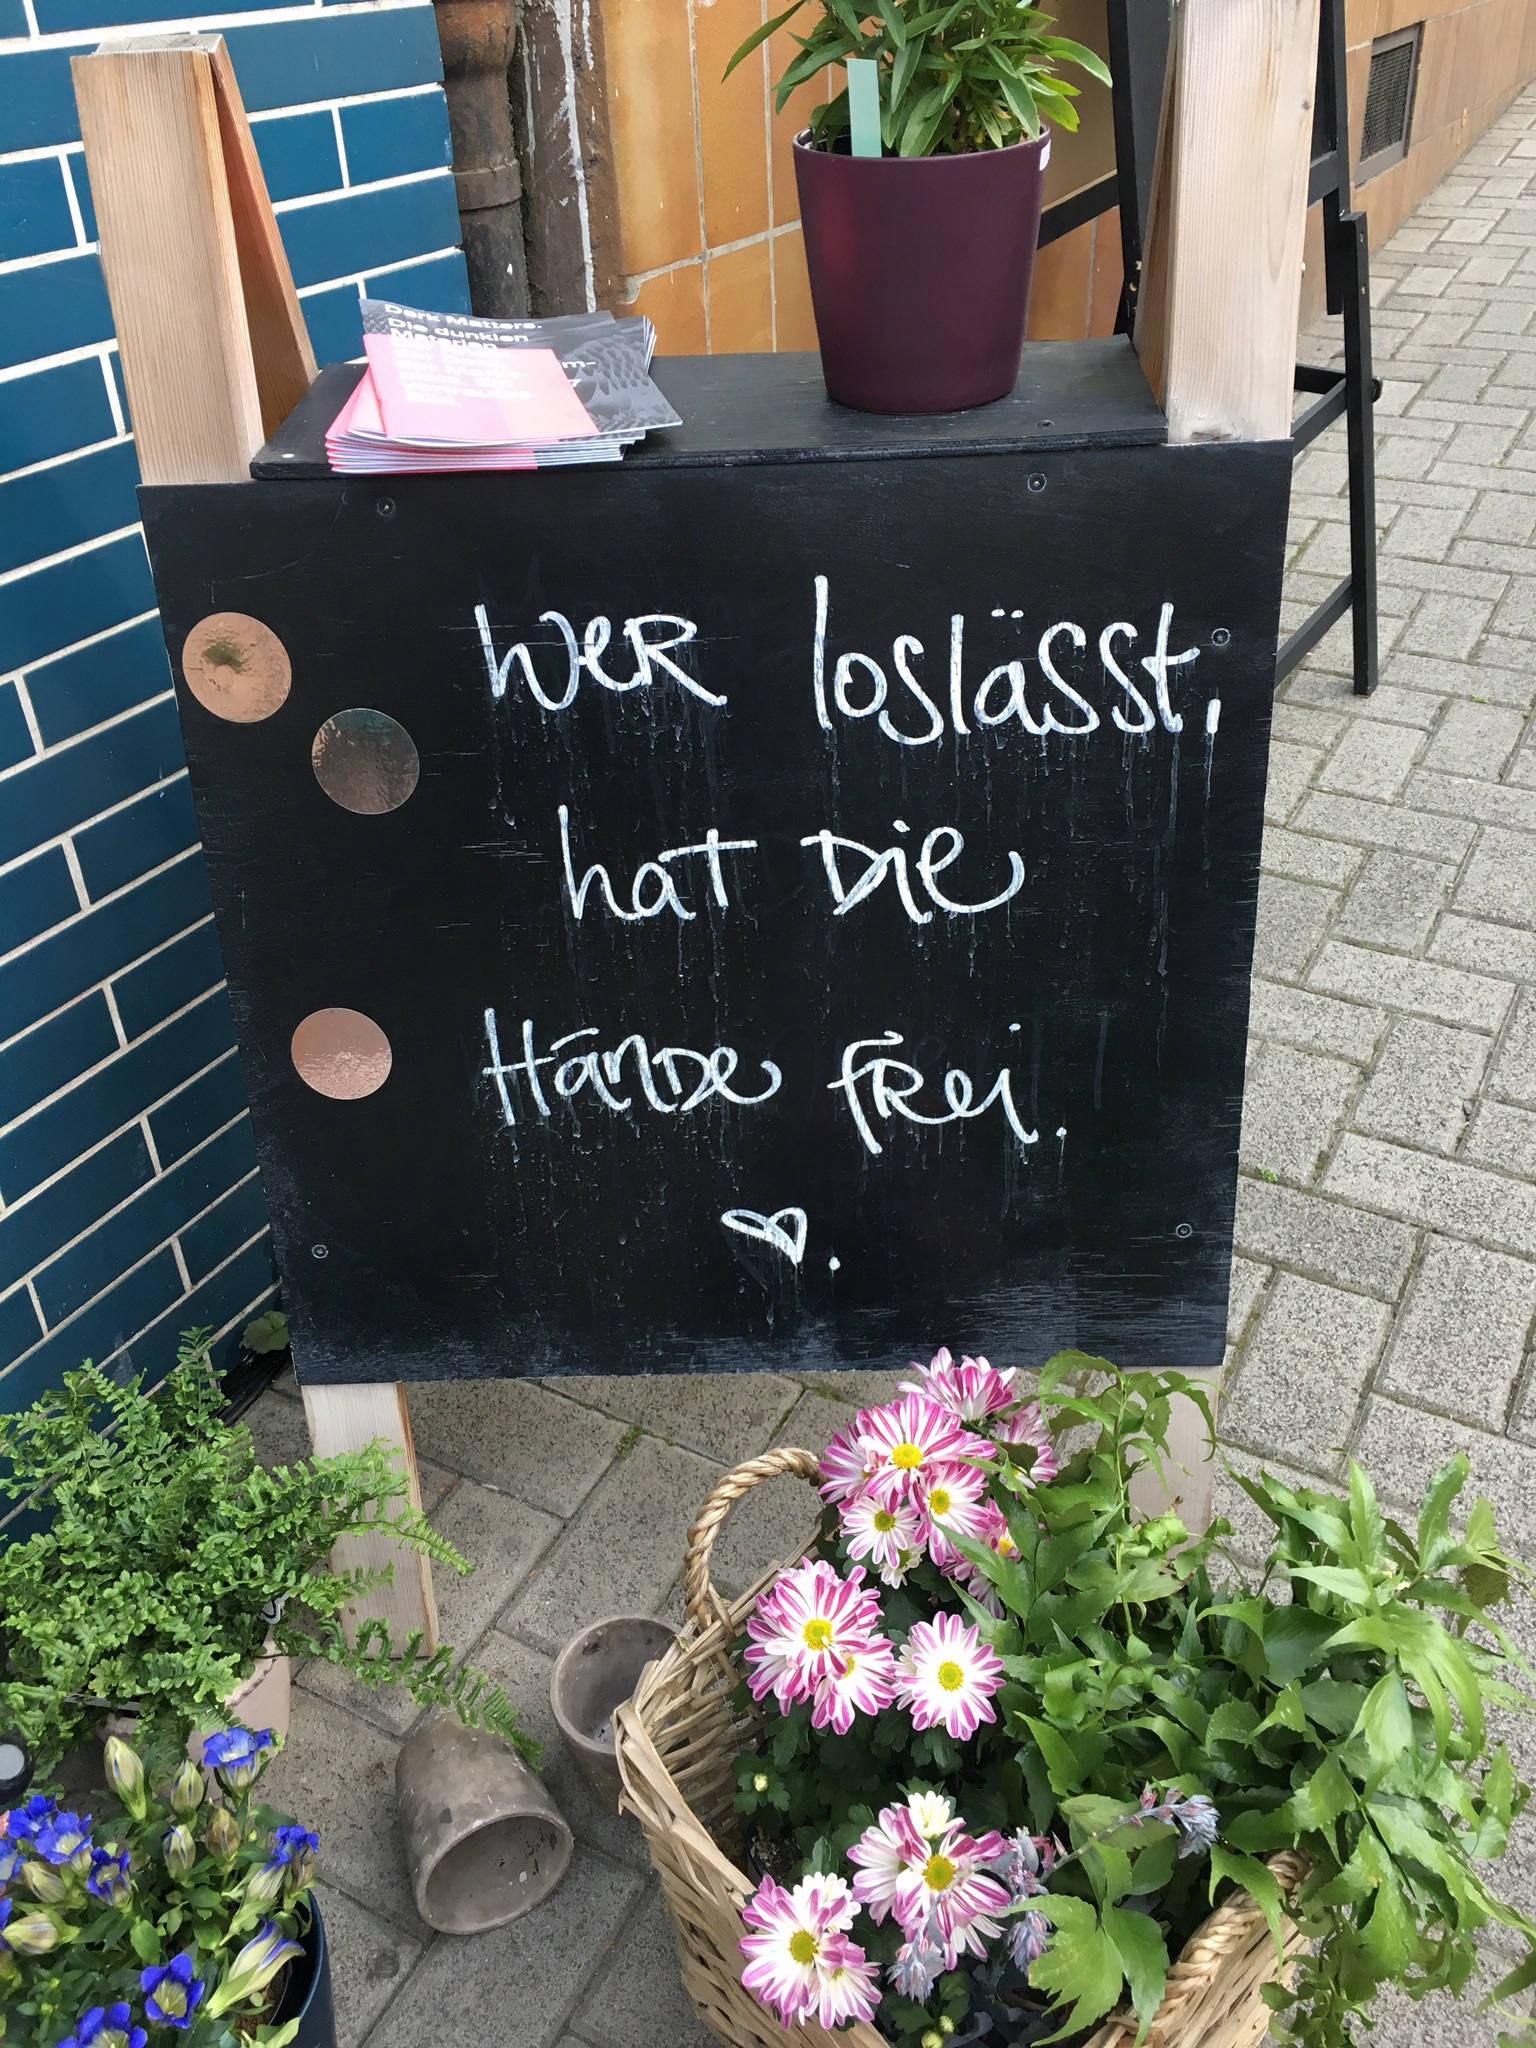 Dark Matters.
Die dunklen
Materien
wer loslässt,
hat die
Hände frei.
♡.